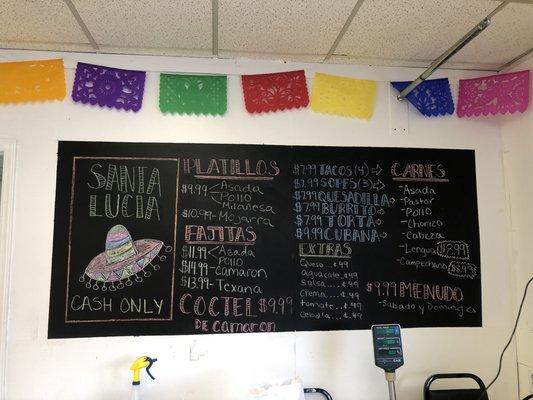 SANTA
LUCIA
CASH ONLY
PLATILLOS
$9.99 Asada
Pollo
Milanesa
$10.99 - Mojarra
FAJITAS
$11.99 Asada
Pollo
$14.99 - Camaron
$13.99 - Texana
COCTEL $9.99
DE Camaron
$7.99 TACOS (4)
$7.99 SOPES (3)
$7.99 QUESADILLA
$7.99 BURRITO
$7.99 TORTA
$9.99 CUBANA
EXTRAS
Queso .49
aguacate .49
Salsa .49
Crema .49
tomate .49
Cebolla .49
CARNES
- Asada
- Pastor
- Pollo
- Chorizo
- Cabeza
- Lengua
- Campechano $8.99
$9.99 MENUDO
- Sabado y Domingo